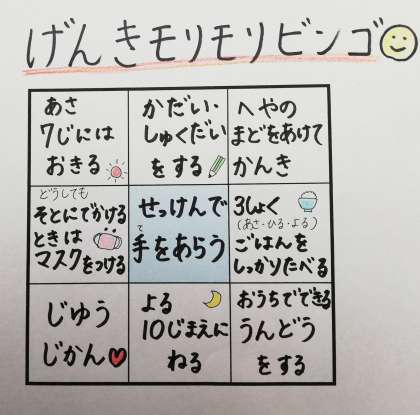 げんきモリモリビンゴ
あさ
7じには
おきる
かだい・
しゅくだい
をする
へやの
まどをあけて
かんき
どうしても
そとにでかける
ときは
マスクをつける
せっけんで
て
手をあらう
3しょく
(あさ・ひる・よる)
ごはんを
しっかりたべる
じゆう
じかん
よる
10じまえに
ねる
おうちでできる
うんどう
をする